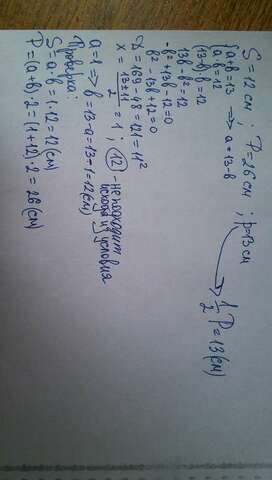 S = 12 см ; P = 26 см ; p = 13 см
1/2 P = 13 (см)
{ a + b = 13
a · b = 12 => a = 13 - b
(13 - b) b = 12
13b - b² = 12
-b² + 13b - 12 = 0
b² - 13b + 12 = 0
D = 169 - 48 = 121 = 11²
x = (13 ± 11)/2 = 1 ; 12 - не подходит
исходя из условия
a = 1 => b = 13 - a = 13 - 1 = 12 (см)
Проверка:
S = a · b = 1 · 12 = 12 (см)
P = (a + b) · 2 = (1 + 12) · 2 = 26 (см)